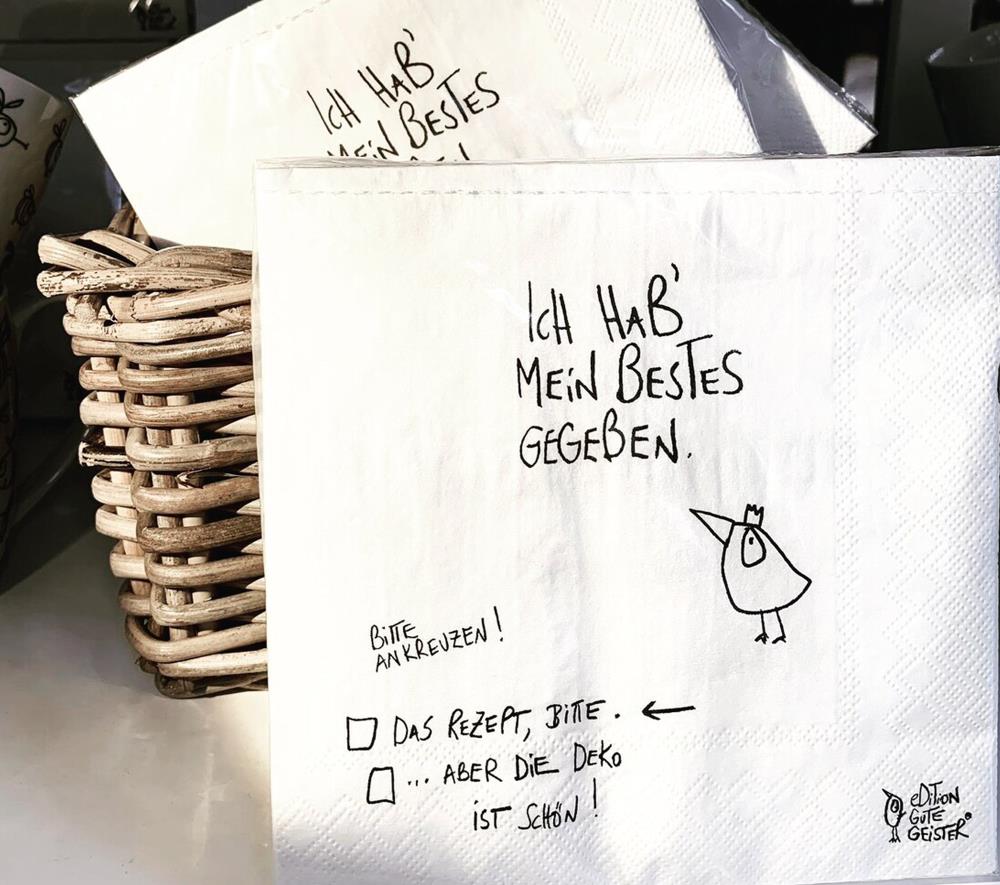 ICH HAB'
MEIN BESTES
ICH HAB'
MEIN BESTES
GEGEBEN.
BITTE
ANKREUZEN!
DAS REZEPT, BITTE. ←
... ABER DIE DEKO
IST SCHÖN!
eDITION
GUTE
GEISTER®